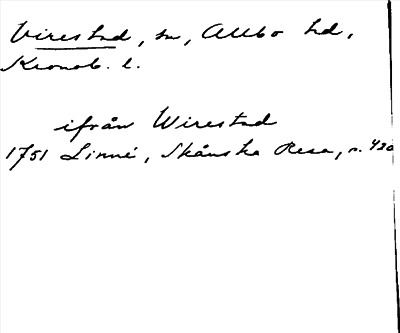 Virestad, sn, Allbo hd,
Kronob. l.
ifrån Wirestad
1751 Linné, Skånska Resa, s. 420